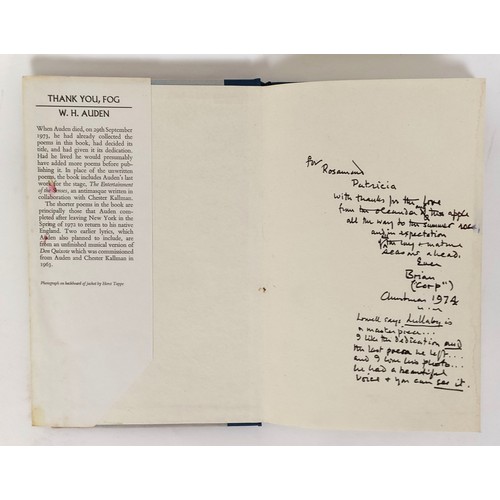 THANK YOU, FOG
W. H. AUDEN
When Auden died, on 29th September
1973, he had already collected the
poems in this book, had decided its
title, and had given it its dedication.
Had he lived he would presumably
have added more poems before pub-
lishing it. In place of the unwritten
poems, the book includes Auden's last
work for the stage, The Entertainment
of the Senses, an antimasque written in
collaboration with Chester Kallman.
The shorter poems in the book are
principally those that Auden com-
pleted after leaving New York in the
Spring of 1972 to return to his native
England. Two earlier lyrics, which
Auden also planned to include, are
from an unfinished musical version of
Don Quixote which was commissioned
from Auden and Chester Kallman in
1963.
Photograph on back of jacket by
for Rosamund
Patricia
with thanks for the love
from the oleander & the apple
all the way to the summer
and in expectation
of the long & mature
seasons ahead.
Ever
Brian
("Corp")
Christmas 1974
Lowell says Lullaby is
a masterpiece...
I like the dedication and
the last poem he left...
and I love his photo...
he had a beautiful
voice & you can see it.